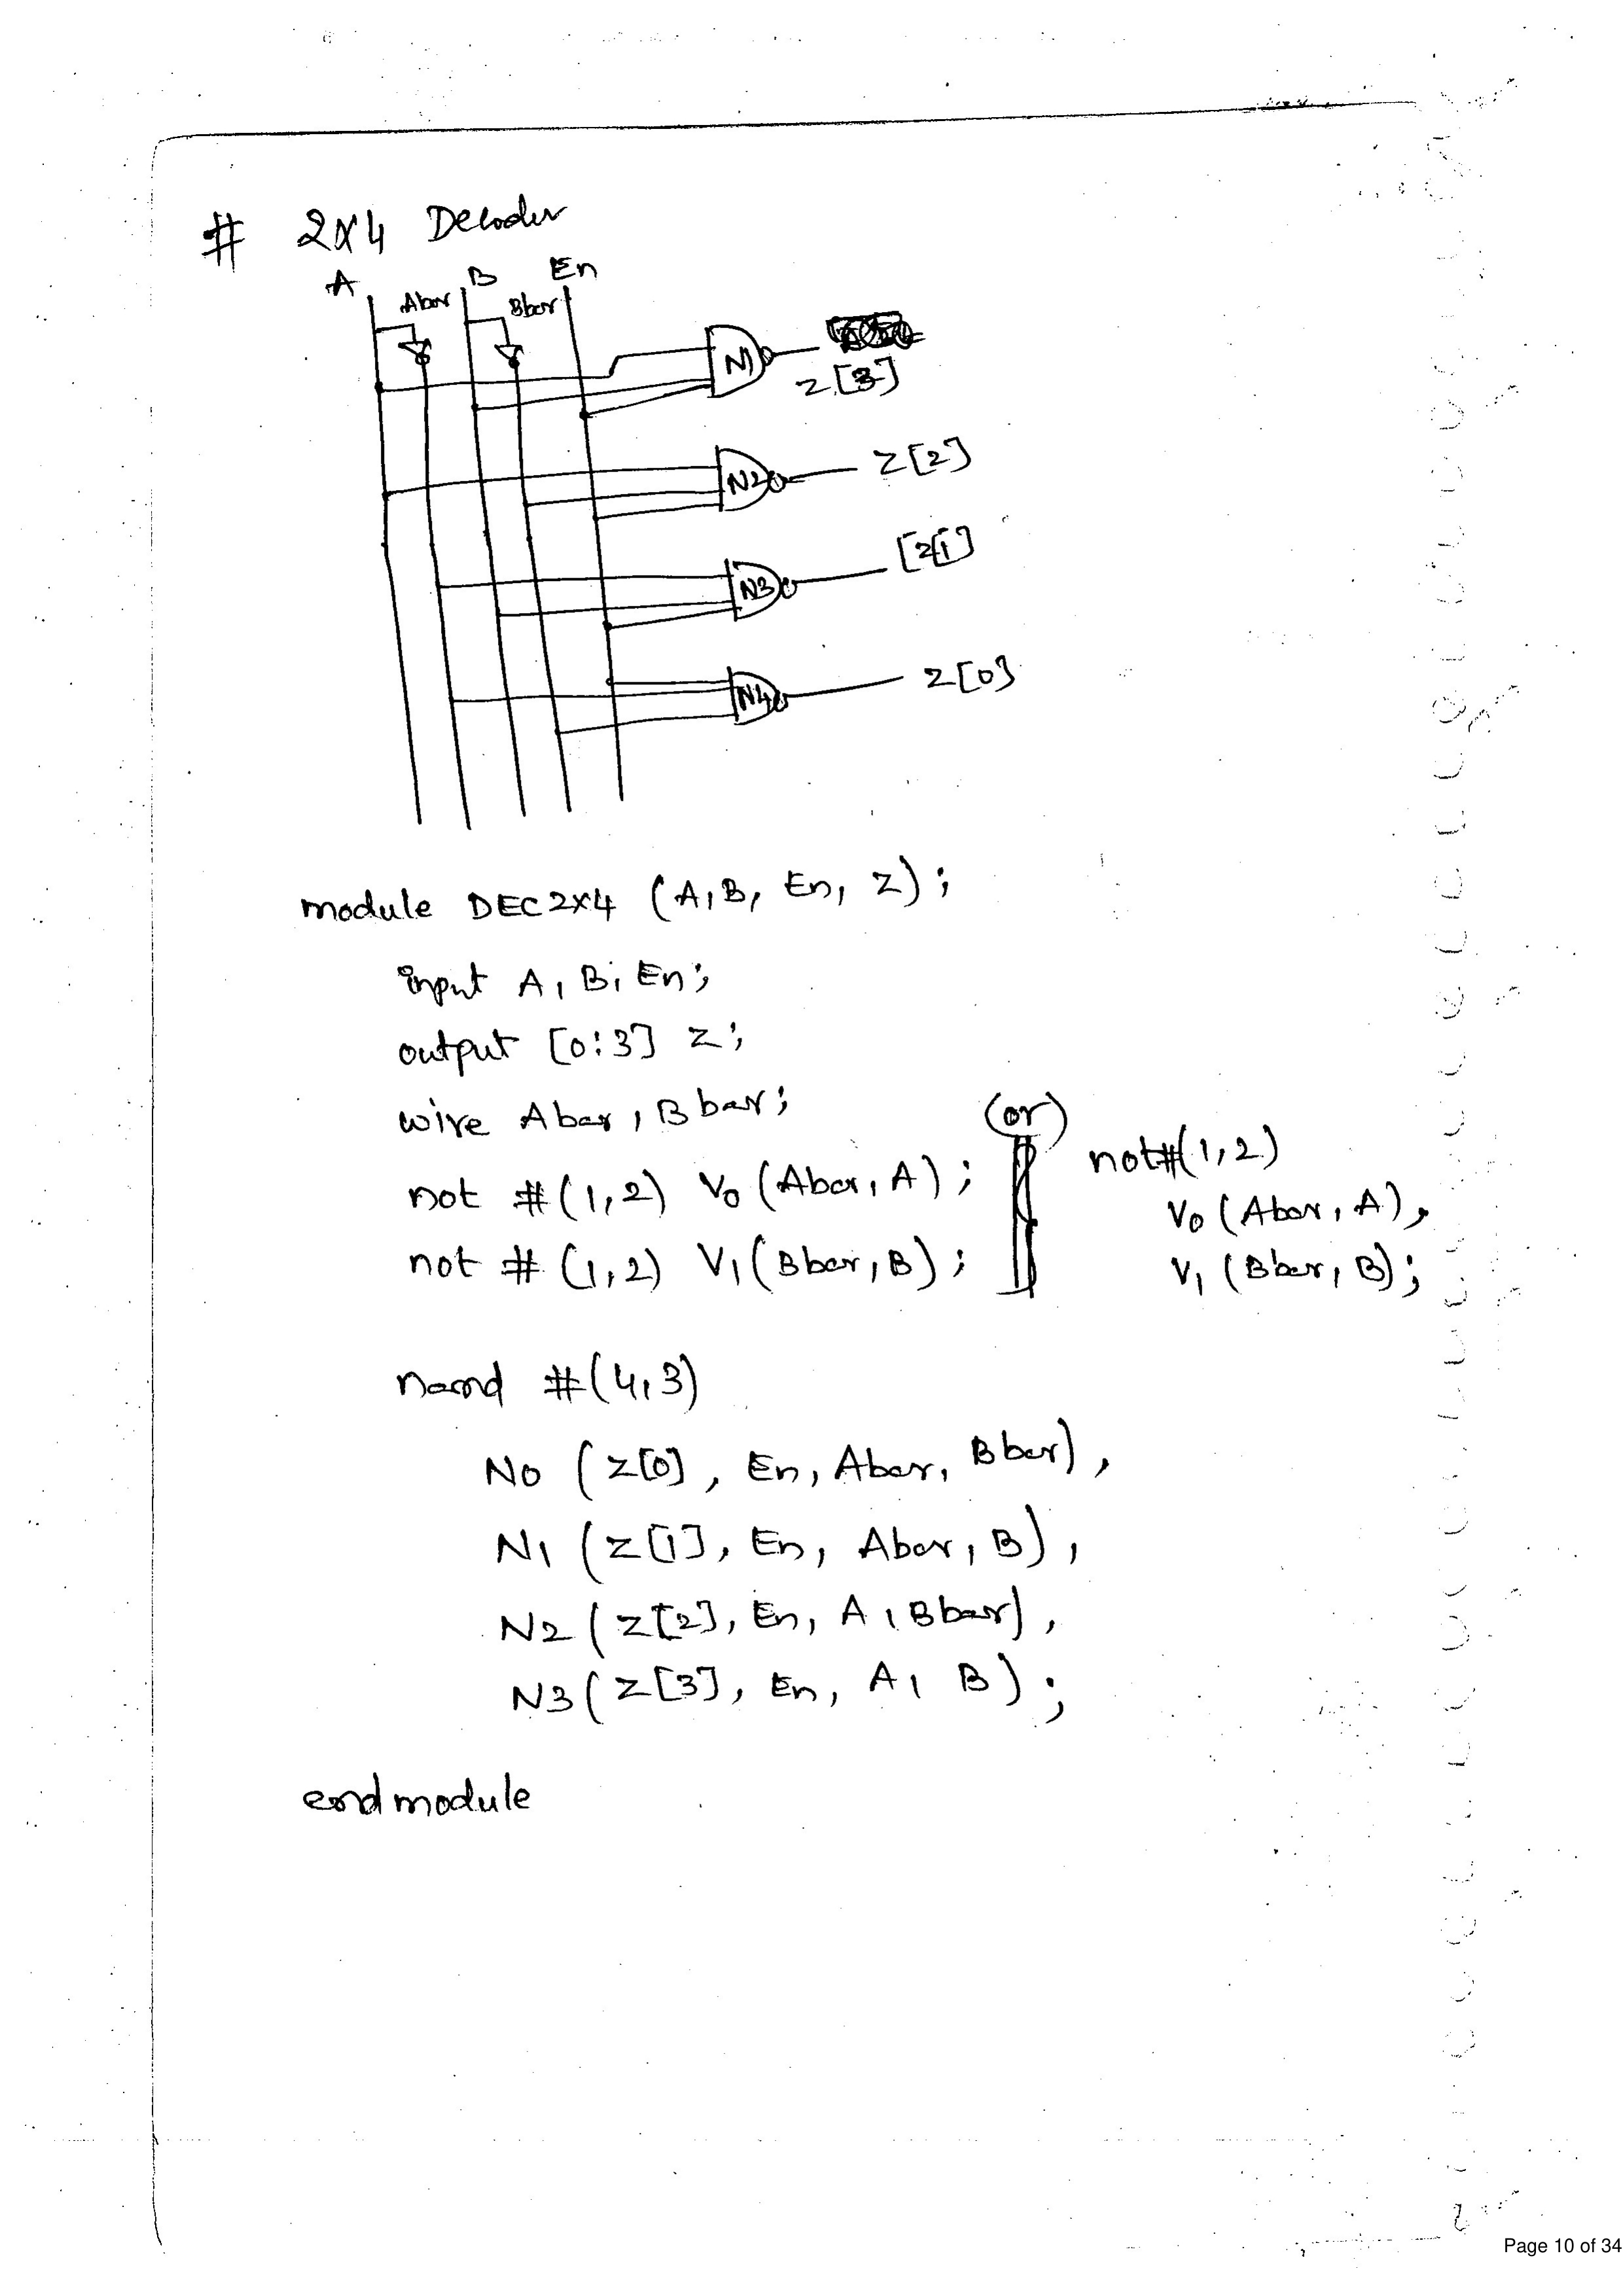 # 2x4 Decoder
A Abar B Bbar En
N1 Z[3]
N2 Z[2]
N3 [Z[1]
N4 Z[0]
module DEC2x4 (A, B, En, Z);
input A, B, En;
output [0:3] Z;
wire Abar, Bbar;
(or)
not #(1,2) V0 (Abar, A); not#(1,2)
V0 (Abar, A),
not #(1,2) V1 (Bbar, B); V1 (Bbar, B);
nand #(4,3)
N0 (Z[0], En, Abar, Bbar),
N1 (Z[1], En, Abar, B),
N2 (Z[2], En, A, Bbar),
N3 (Z[3], En, A, B);
endmodule
Page 10 of 34